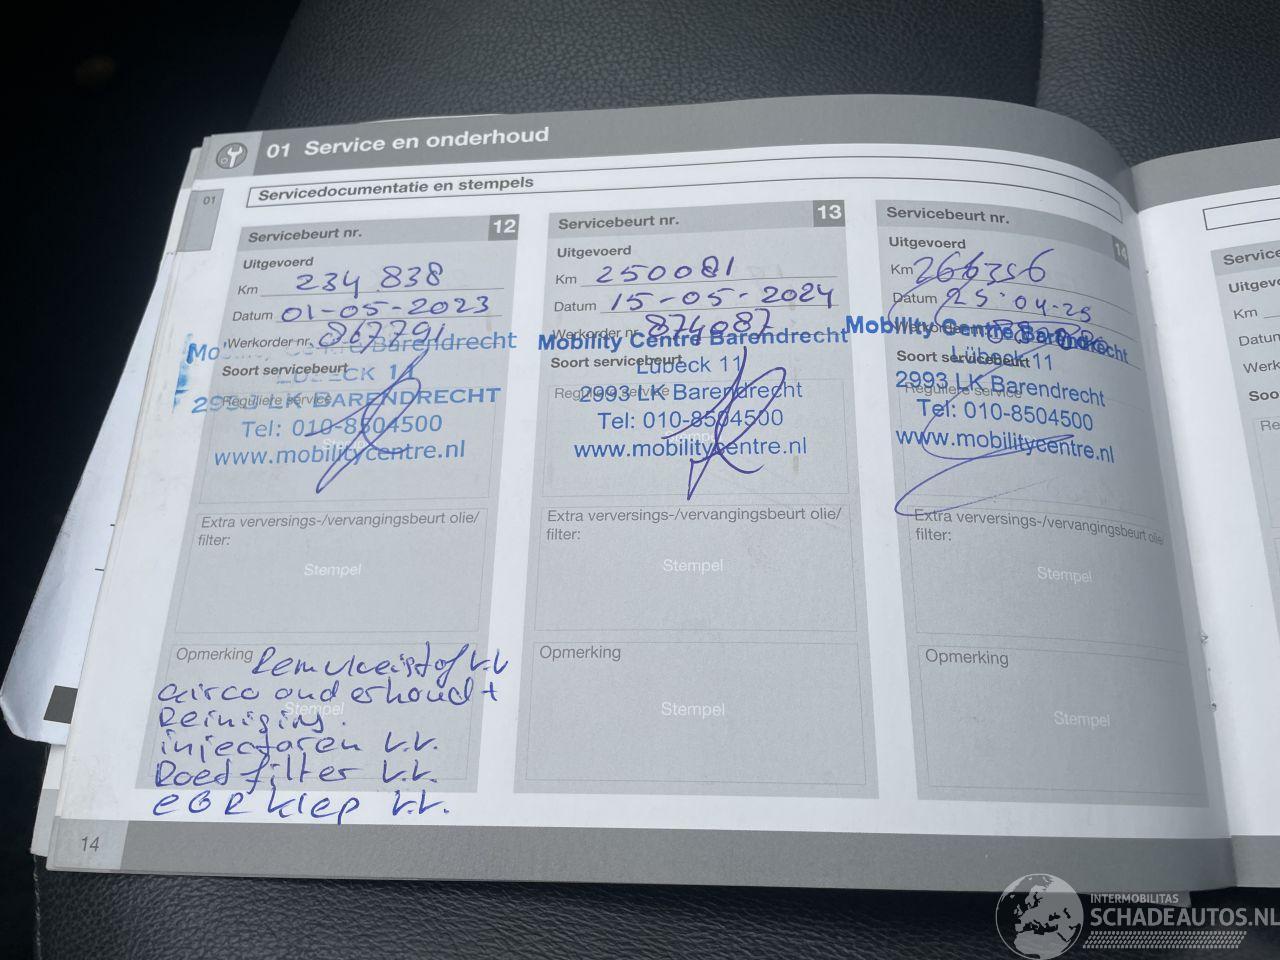 01 Service en onderhoud
01
Servicedocumentatie en stempels
Servicebeurt nr. 12
Uitgevoerd
Km 234 838
Datum 01-05-2023
Werkorder nr. 867791
Mobility Centre Barendrecht
Soort servicebeurt
LÜBECK 11
Reguliere service
2993 LK BARENDRECHT
Tel: 010-8504500
Stempel
www.mobilitycentre.nl
Extra verversings-/vervangingsbeurt olie/
filter:
Stempel
Opmerking Remvloeistof v.v
airco onderhoud +
Stempel
Reiniging.
injectoren v.v.
Roetfilter v.v.
EGR klep v.v.
Servicebeurt nr. 13
Uitgevoerd
Km 250081
Datum 15-05-2024
Werkorder nr. 874087
Mobility Centre Barendrecht
Soort servicebeurt
Lübeck 11
Reguliere service
2993 LK Barendrecht
Tel: 010-8504500
Stempel
www.mobilitycentre.nl
Extra verversings-/vervangingsbeurt olie/
filter:
Stempel
Opmerking
Stempel
Servicebeurt nr. 14
Uitgevoerd
Km 266356
Datum 25-04-25
Werkorder
Mobility Centre Barendrecht
Soort servicebeurt
Lübeck 11
Reguliere service
2993 LK Barendrecht
Tel: 010-8504500
www.mobilitycentre.nl
Extra verversings-/vervangingsbeurt olie/
filter:
Stempel
Opmerking
Stempel
Service
Uitgevo
Km
Datum
Werk
Soo
Re
Ex
14
INTERMOBILITAS
SCHADEAUTOS.NL